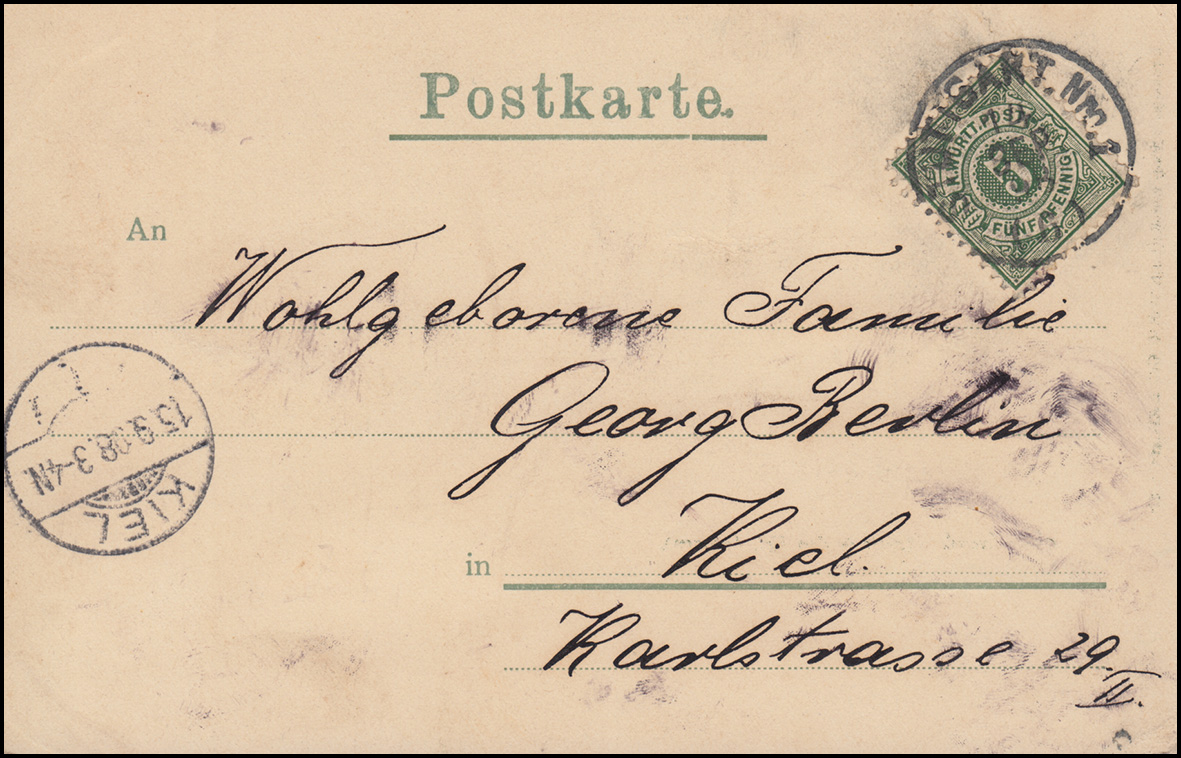 Postkarte.
K. WÜRTT. POST
5
FÜNF PFENNIG
STUTTGART. Nr. 1
An
Wohlgeborene Familie
Georg Berlin
15.9.98. 3-4N
KIEL
in Kiel.
Karlstrasse 29.
II.